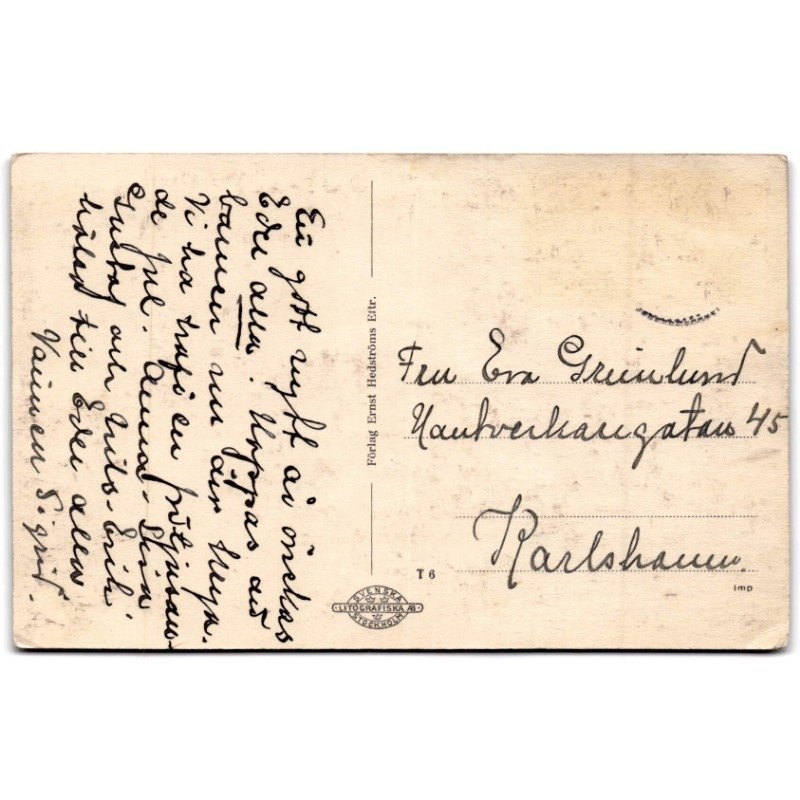 Ett gott nytt år önskas
Eder alla. Hoppas att
barnen nu äro krya.
Vi ha haft en förtjusan-
de jul. Anna-Lisa
Gustaf och Nils-Erik
hälsa till Eder alla
Vännen Sigrid.
Förlag Ernst Hedströms Eftr.
SVENSKA
LITOGRAFISKA AB
STOCKHOLM
T 6
Fru Eva Grönlund
Hantverkaregatan 45
Karlshamn.
IMP